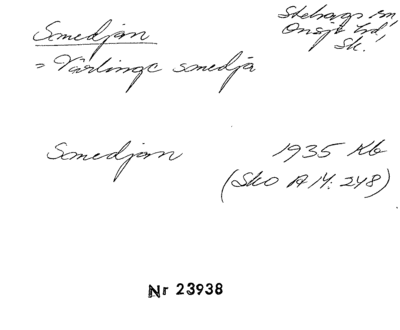 Smedjan
Skeboga sn,
Onsjö hd,
Sk.
= Värlinge smedja
Smedjan 1935 Kb
(Sko A 14: 248)
Nr 23938